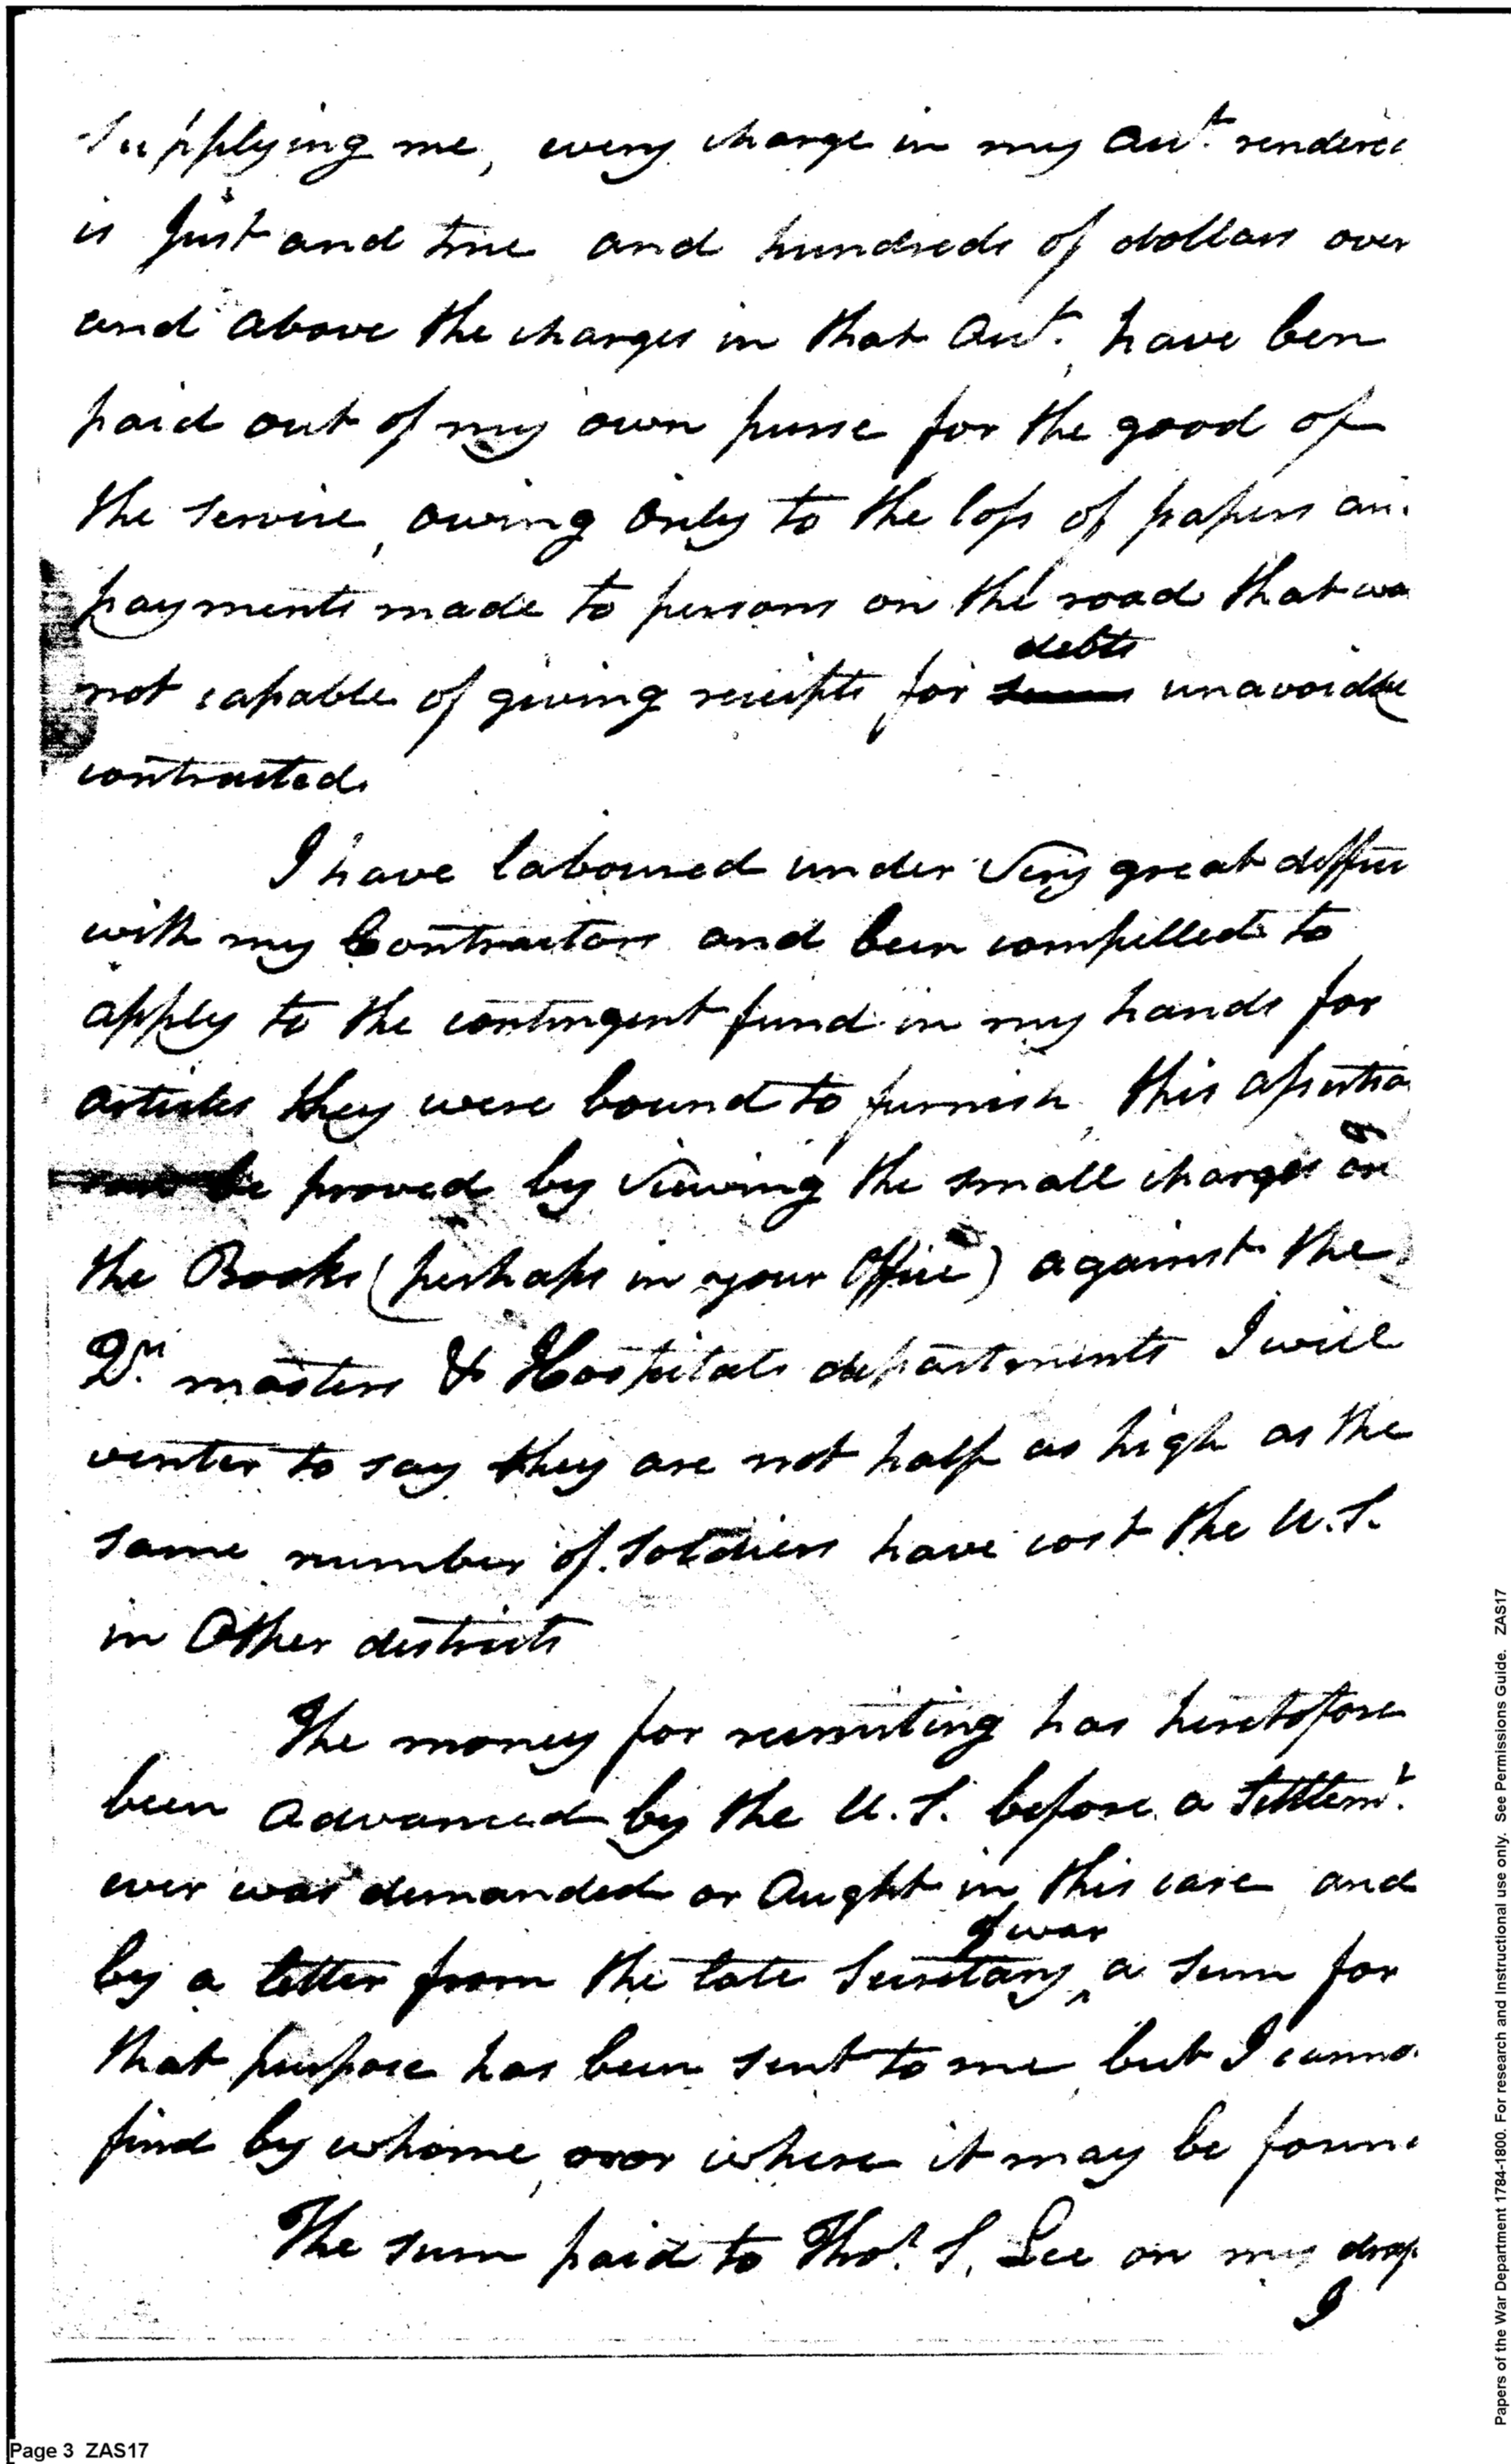 supplying me, every charge in my acct. rendered
is just and true and hundreds of dollars over
and above the charges in that acct. have ben
paid out of my own purse for the good of
the service, owing only to the loss of papers an
payments made to persons on the road that wa
not capable of giving receipts for debts unavoidbe
contracted.
I have laboured under very great diffic
with my Contractors and been compelled to
apply to the contingent fund in my hands for
articles they were bound to furnish, this assertio
be proved by viewing the small charges on
the Books (perhaps in your Office) against the
Qr. masters & Hospitals departments I will
venter to say they are not half as high as the
same number of soldiers have cost the U.S.
in Other districts
The money for recruiting has heretofore
been advanced by the U.S. before a settlemt.
ever was demanded or Aught in this case and
by a letter from the late Secretary of war a sum for
that purpose has been sent to me but I canno
find by whome, or where it may be foun
The sum paid to Thos. S. Lee on my draf
I
Page 3 ZAS17
Papers of the War Department 1784-1800. For research and Instructional use only. See Permissions Guide. ZAS17